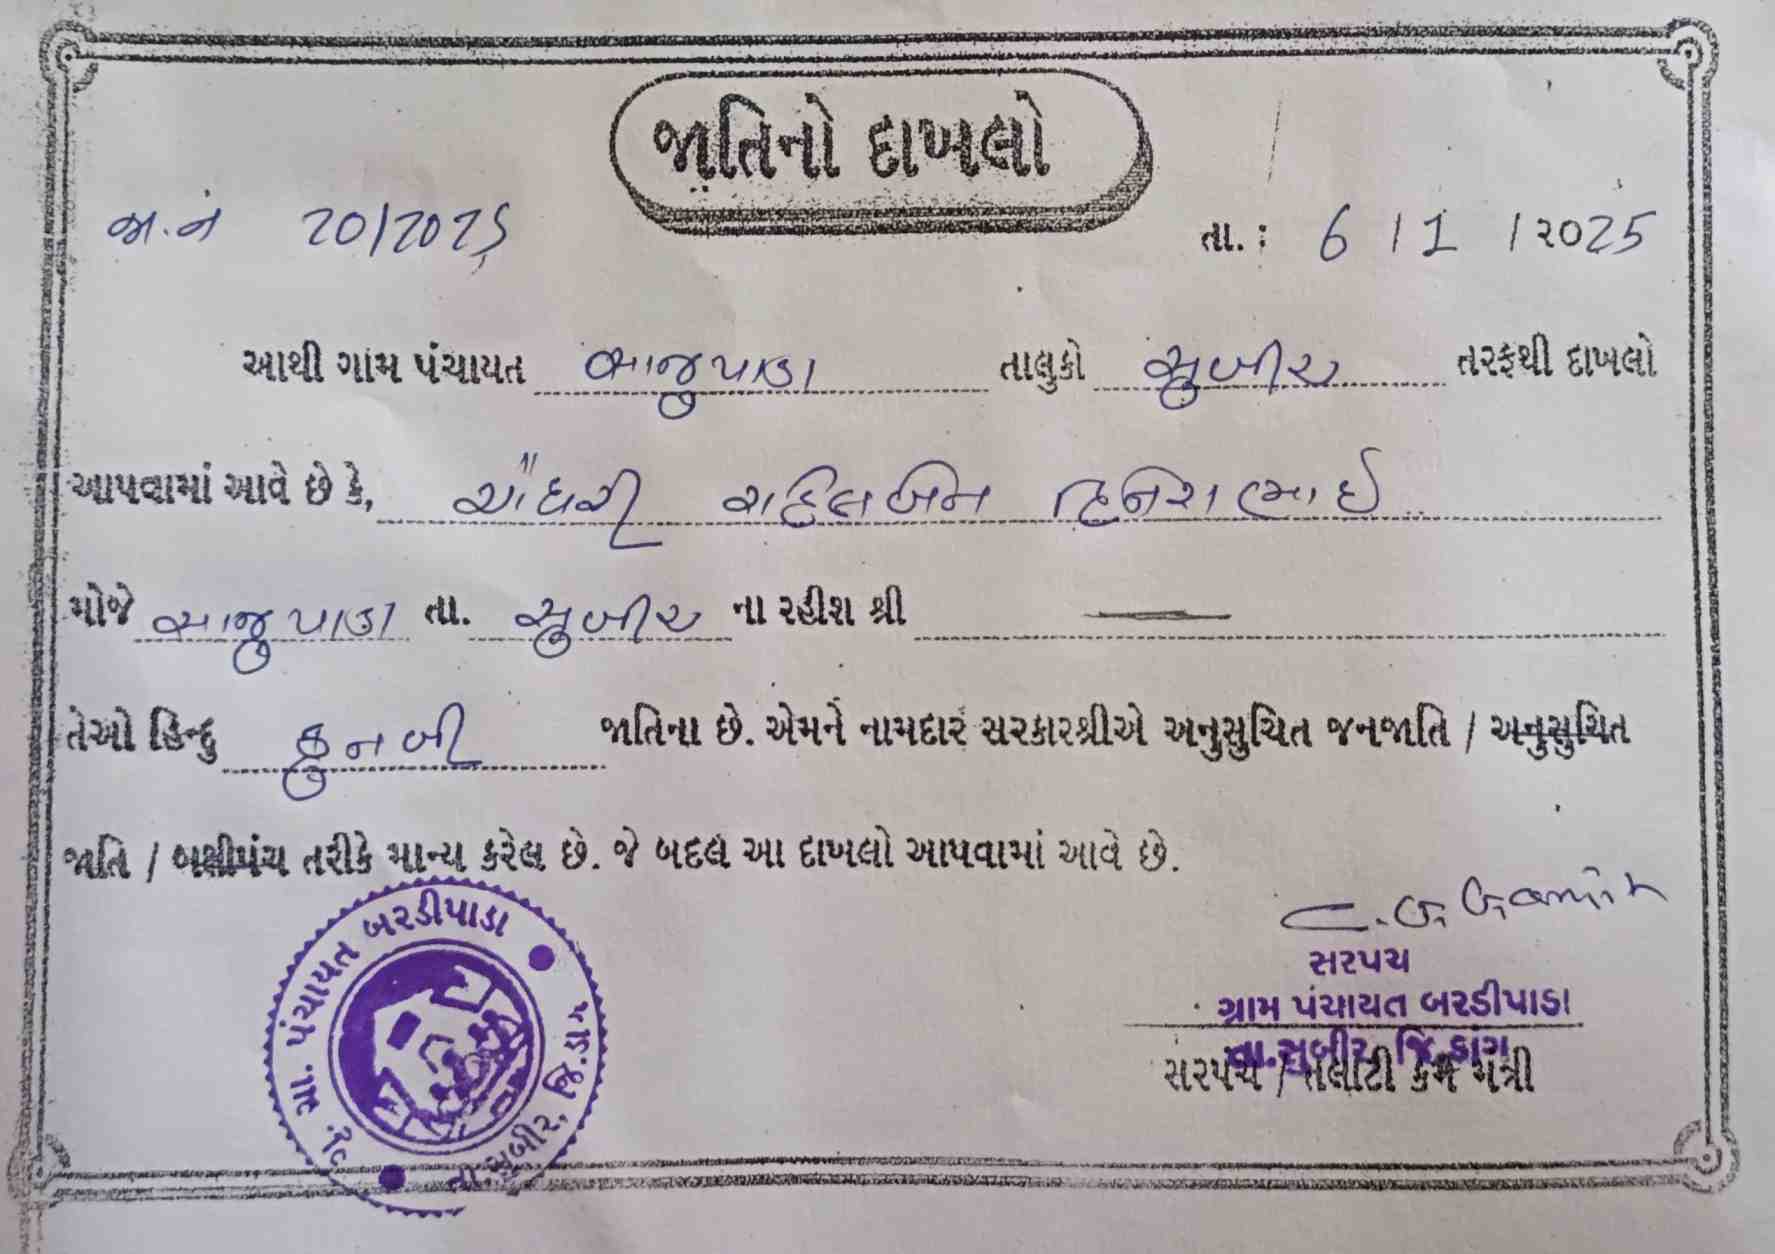 જાતિનો દાખલો
જા.નં 20/2025
તા. : 6 / 1 / ૨૦25
આથી ગામ પંચાયત બાજુપાડા તાલુકો સુબીર તરફથી દાખલો
આપવામાં આવે છે કે, ચૌધરી રાહિલબેન દિનેશભાઈ
મોજે બાજુપાડા તા. સુબીર ના રહીશ શ્રી —
તેઓ હિન્દુ કુનબી જાતિના છે. એમને નામદાર સરકારશ્રીએ અનુસુચિત જનજાતિ / અનુસુચિત
જાતિ / બક્ષીપંચ તરીકે માન્ય કરેલ છે. જે બદલ આ દાખલો આપવામાં આવે છે.
સરપચ
ગ્રામ પંચાયત બરડીપાડા
તા.સુબીર, જિ.ડાંગ
સરપંચ / તલાટી કમ મંત્રી
ગ્રા. પંચાયત બરડીપાડા
તા.સુબીર, જિ.ડાંગ